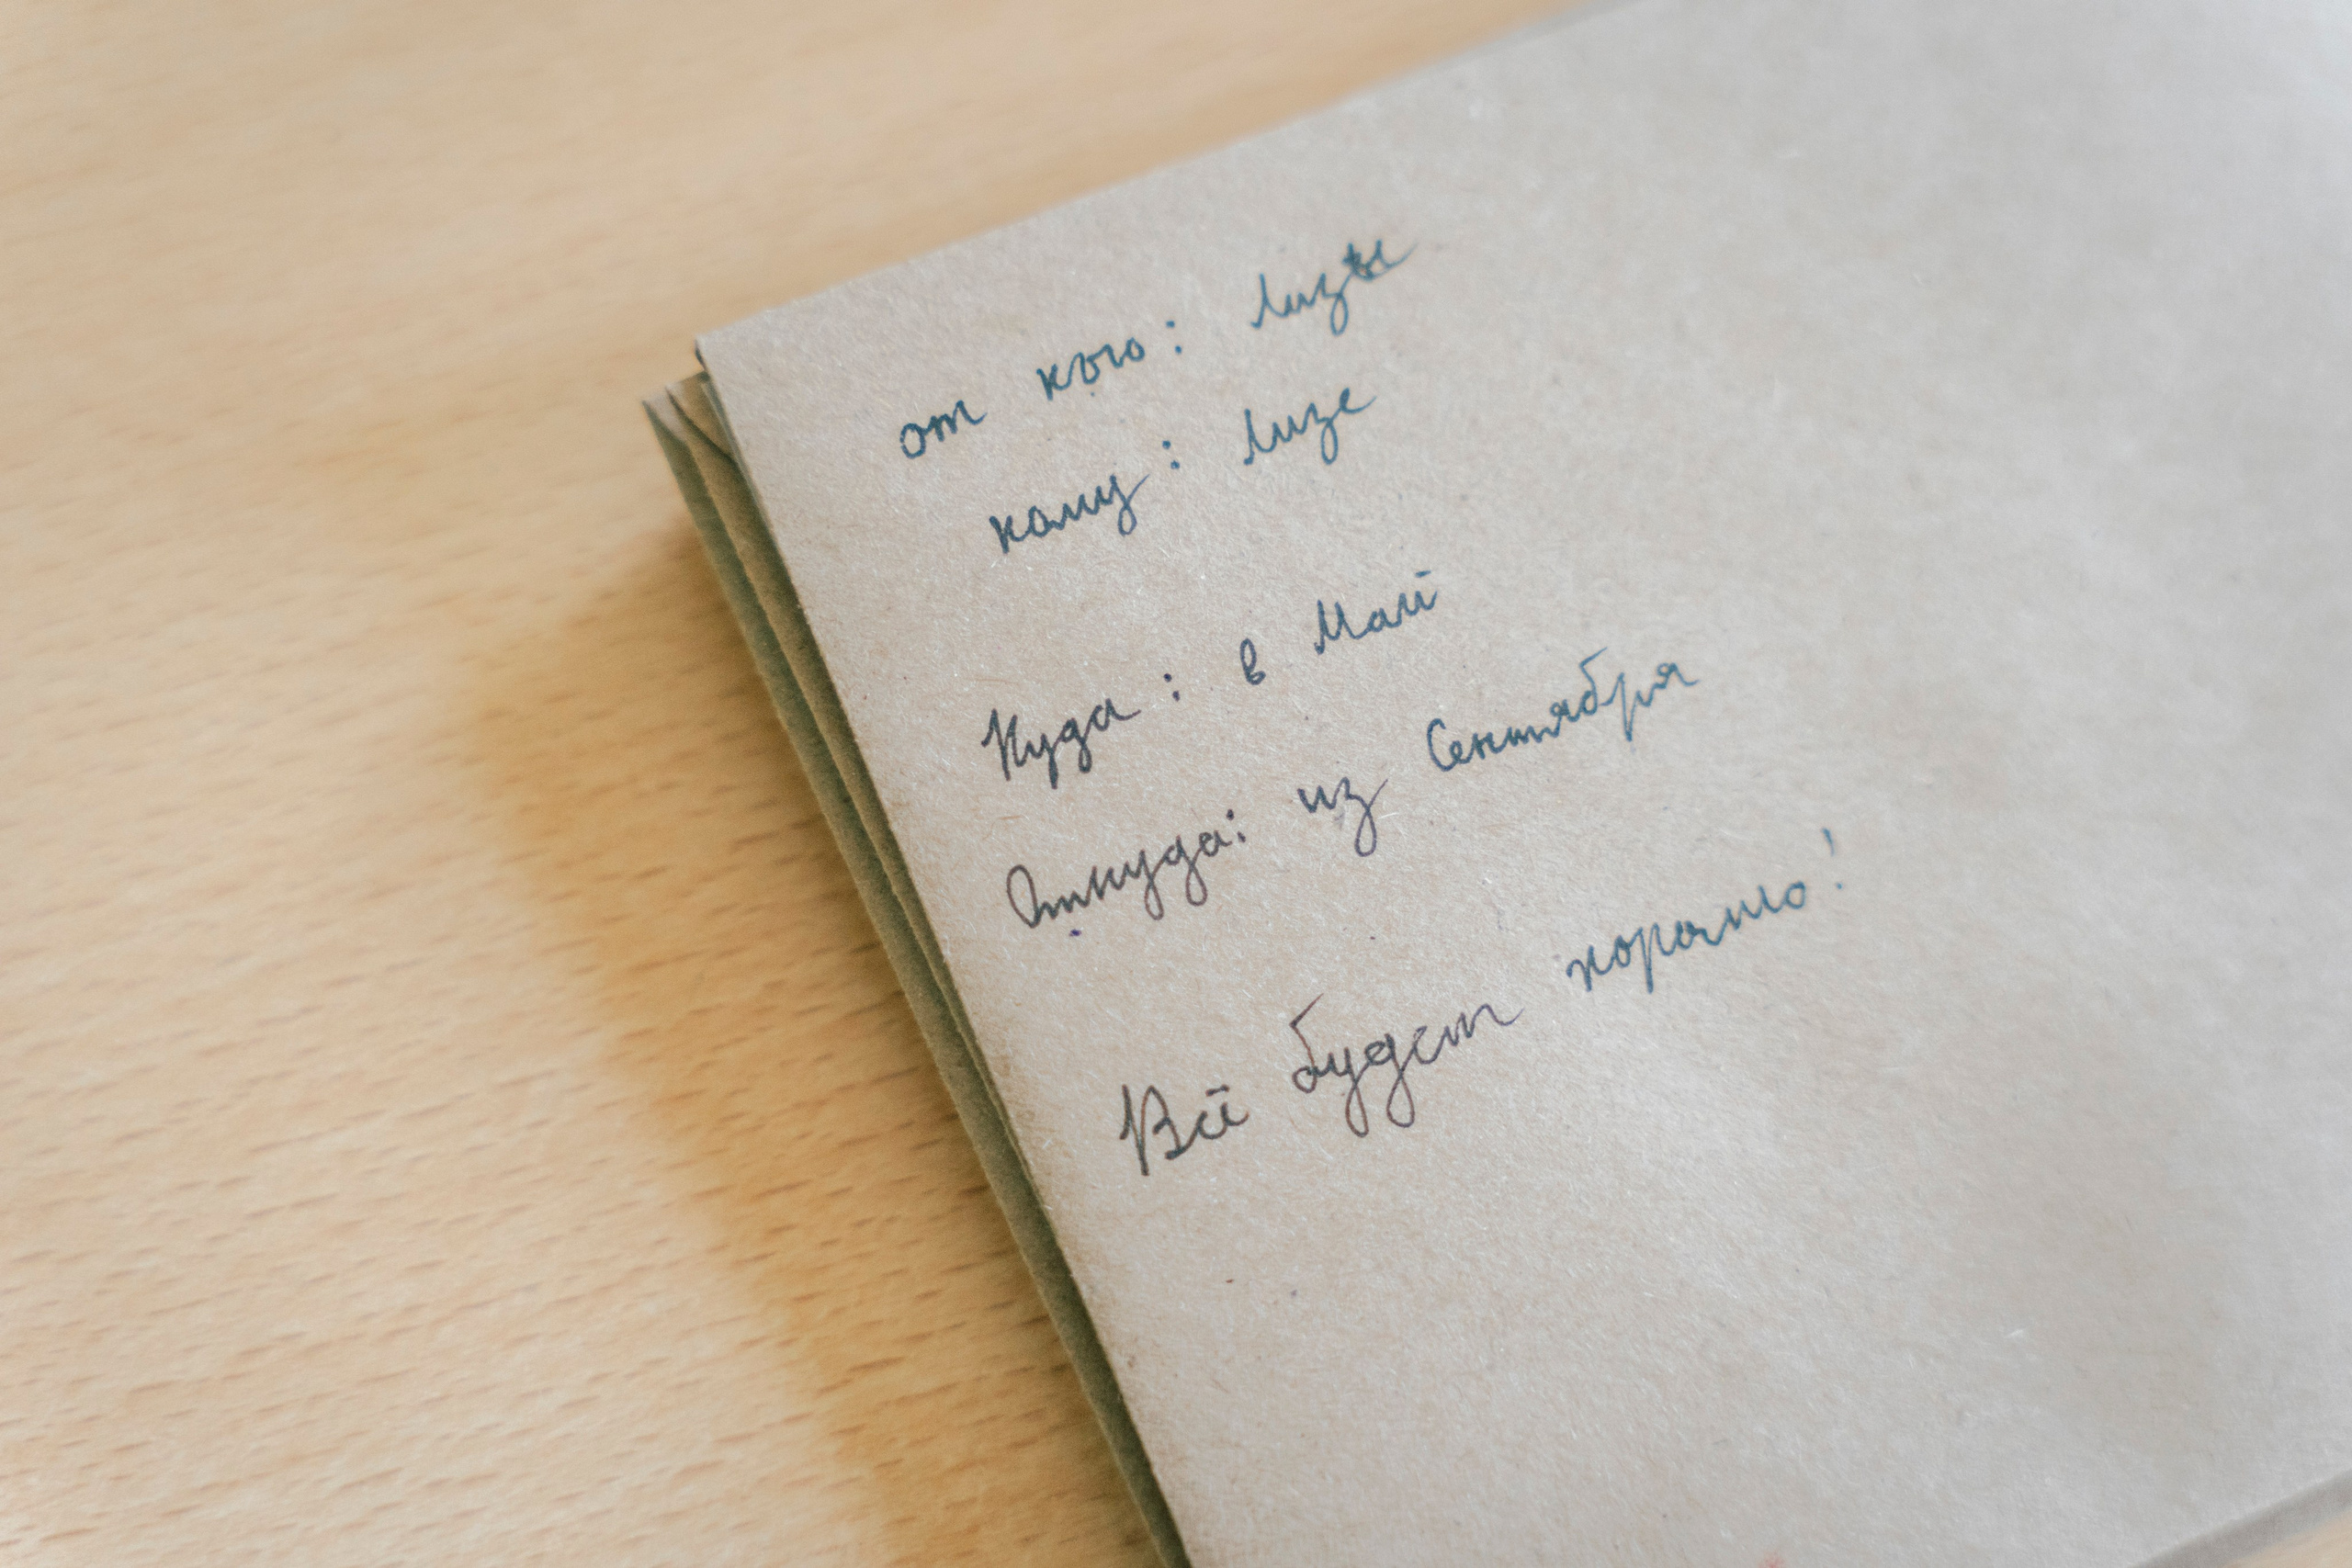 от кого: Лизы
кому: Лизе
Куда: в Май
Откуда: из Сентября
Всё будет хорошо!